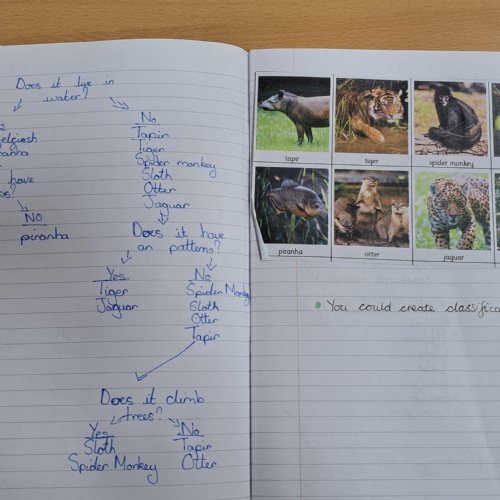 Does it live in
water?
No
Tapir
Tiger
Spider monkey
Sloth
Otter
Jaguar
have
NO
piranha
Does it have
an patterns?
Yes
Tiger
Jaguar
No
Spider Monkey
Sloth
Otter
Tapir
Does it climb
trees?
Yes
Sloth
Spider Monkey
No
Tapir
Otter
tapir
tiger
spider monkey
piranha
otter
jaguar
You could create